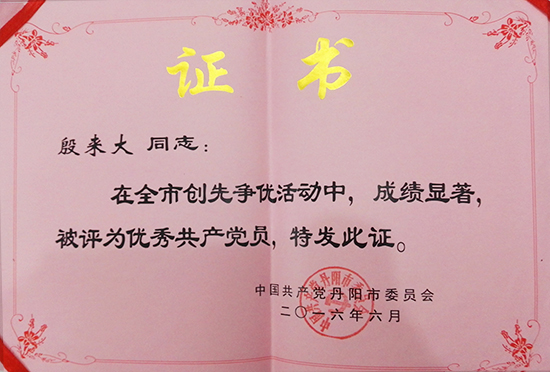 证书
殷来大 同志：
在全市创先争优活动中，成绩显著，
被评为优秀共产党员，特发此证。
中国共产党丹阳市委员会
二〇一六年六月